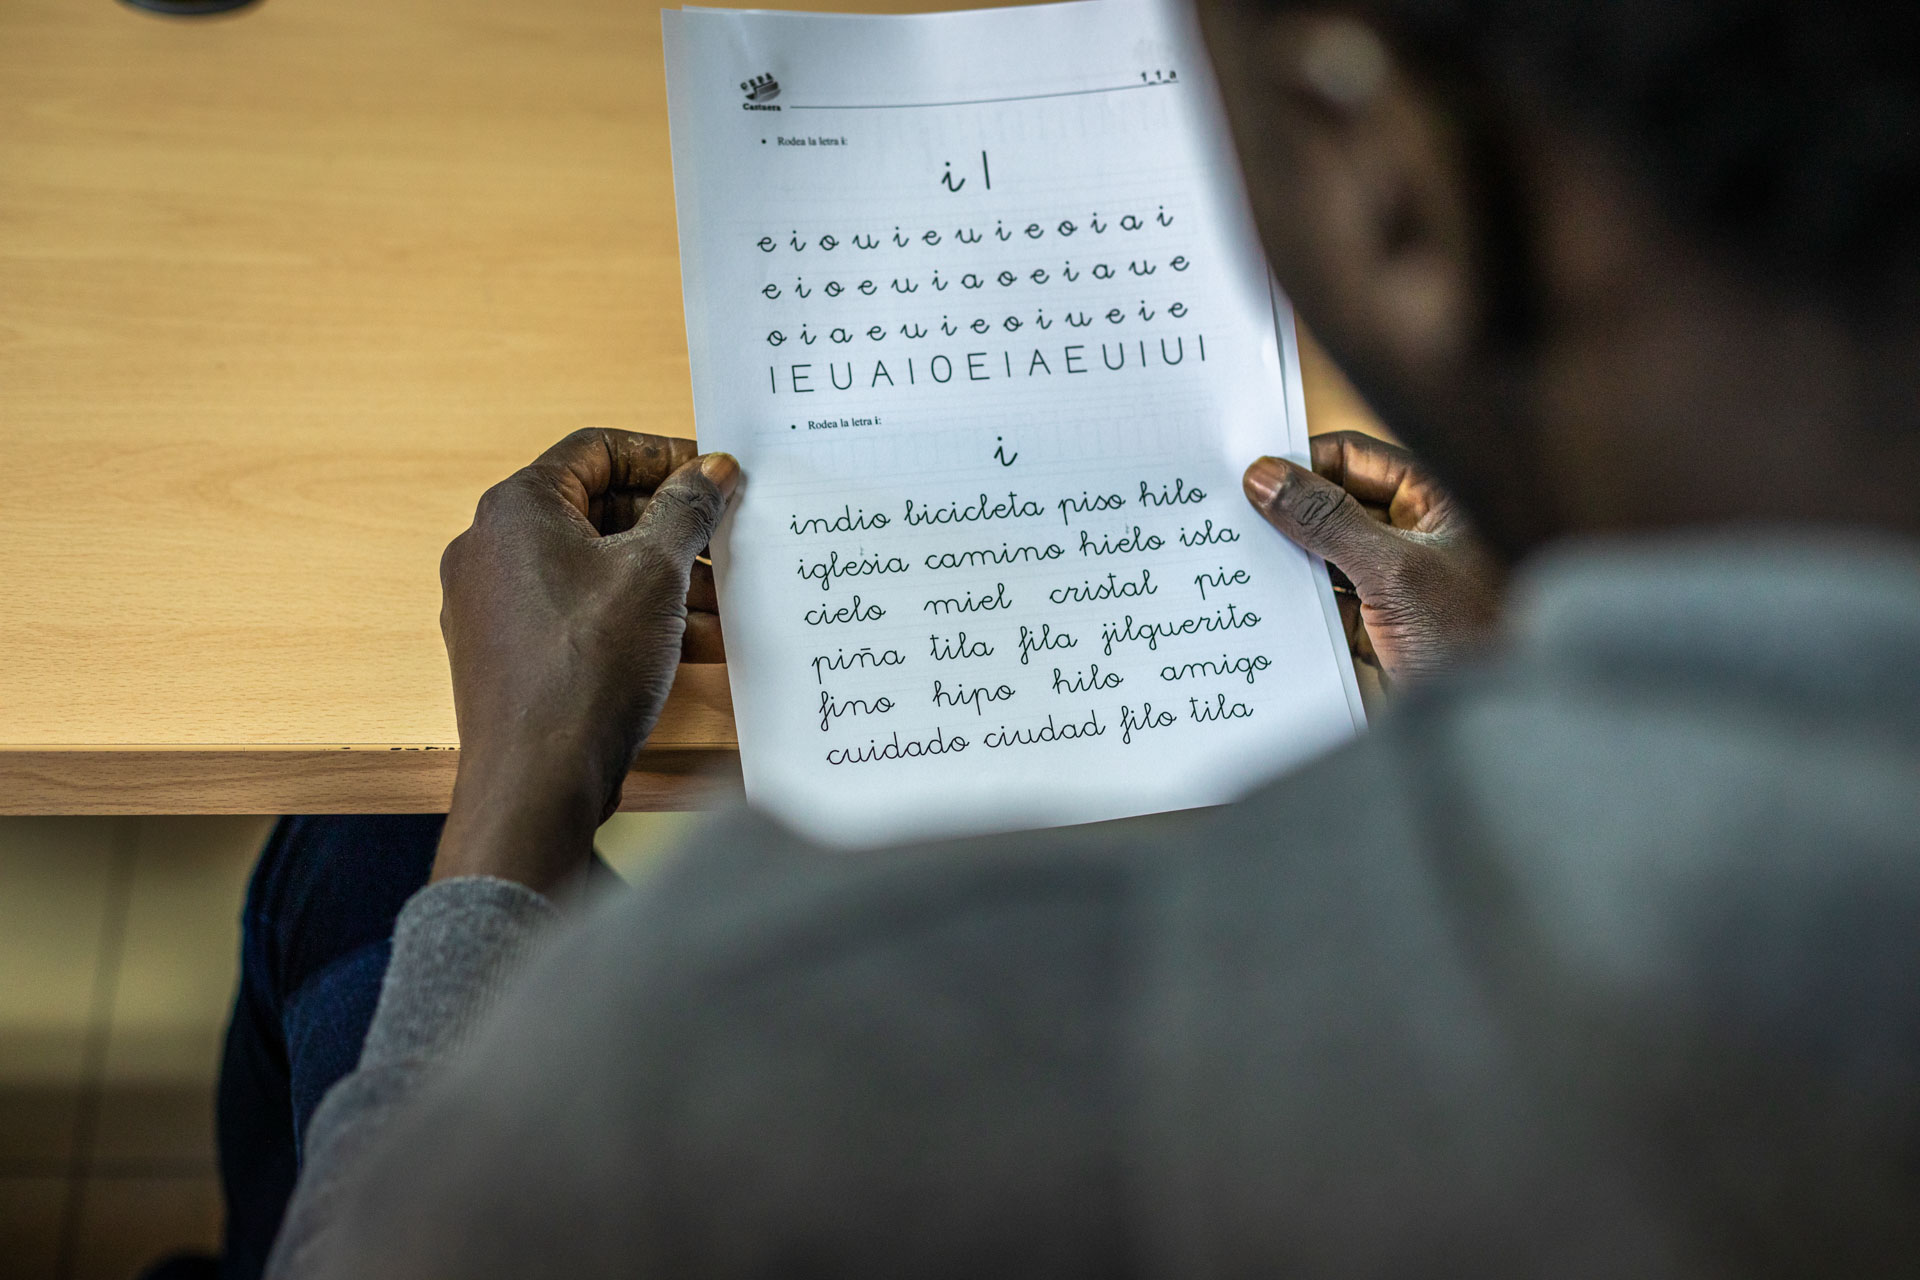 Cartnera
1_1_a
• Rodea la letra i:
i I
e i o u i e u i e o i a i
e i o e u i a o e i a u e
o i a e u i e o i u e i e
I E U A I O E I A E U I U I
• Rodea la letra i:
i
indio bicicleta piso hilo
iglesia camino hielo isla
cielo miel cristal pie
piña tila fila jilguerito
fino hipo hilo amigo
cuidado ciudad filo tila